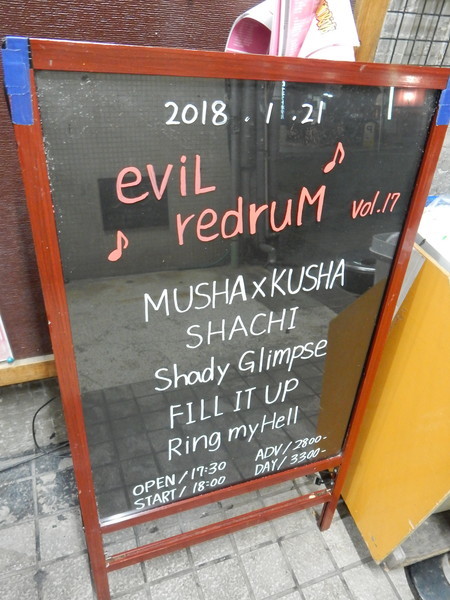 2018.1.21
eviL
redruM vol.17
MUSHA×KUSHA
SHACHI
Shady Glimpse
FILL IT UP
Ring my Hell
OPEN/17:30 ADV/2800-
START/18:00 DAY/3300-